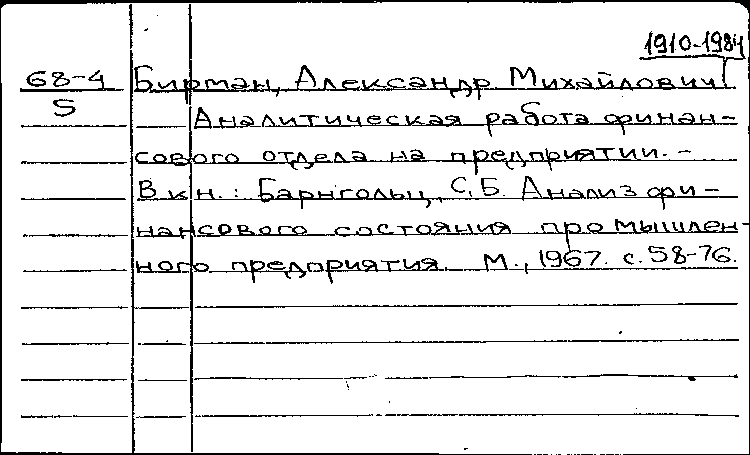 1910-1984
68-4 Бирман, Александр Михайлович
5 Аналитическая работа финан-
сового отдела на предприятии. -
В кн.: Барнгольц, С.Б. Анализ фи-
нансового состояния промышлен-
ного предприятия. М., 1967. с. 58-76.